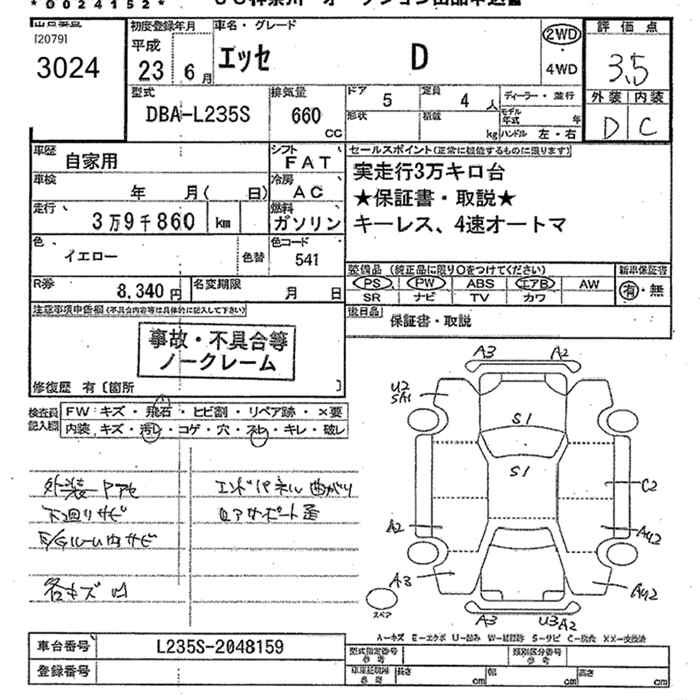 * 0 0 2 4 1 5 2 *
[2079]
3024
初度登録年月
平成
23 6 月
車名・グレード
エッセ D
2WD
・
4WD
評価点
3.5
外装 内装
D C
型式
DBA-L235S
排気量
660
cc
ドア 5
定員 4 人
形状
積載 kg
ディーラー・並行
モデル年式 年
ハンドル 左・右
車歴
自家用
シフト
FAT
車検
年 月( 日)
冷房
AC
走行
3万9千860 km
燃料
ガソリン
セールスポイント(正常に機能するものに限ります)
実走行3万キロ台
★保証書・取説★
キーレス、4速オートマ
色
イエロー
色替
色コード
541
R券
8,340 円
名変期限
月 日
装備品(純正品に限り○をつけてください)
PS PW ABS エアB AW
SR ナビ TV カワ
新車保証書
有・無
後日品
保証書・取説
注意事項申告欄(不具合内容等は具体的に記入して下さい)
事故・不具合等
ノークレーム
修復歴 有〔箇所 〕
検査員
記入欄
FW キズ・飛石・ヒビ割・リペア跡・×要
内装、キズ・汚レ・コゲ・穴・スレ・キレ・破レ
外装ドアセ
下廻りサビ
E/Gルーム内サビ
各キズ凹
エンドパネル曲がり
ロアサポート歪
A3 A2
U2
SA1
S1
S1
C2
A2
AU2
A3
AU2
A3 U3 A2
スペア
A-キズ E-エクボ U-凹み W-補修跡 S-サビ C-腐食 XX-交換済
車台番号 L235S-2048159
登録番号
型式指定番号
参考
類別区分番号
参考
長さ cm
幅 cm
高さ cm